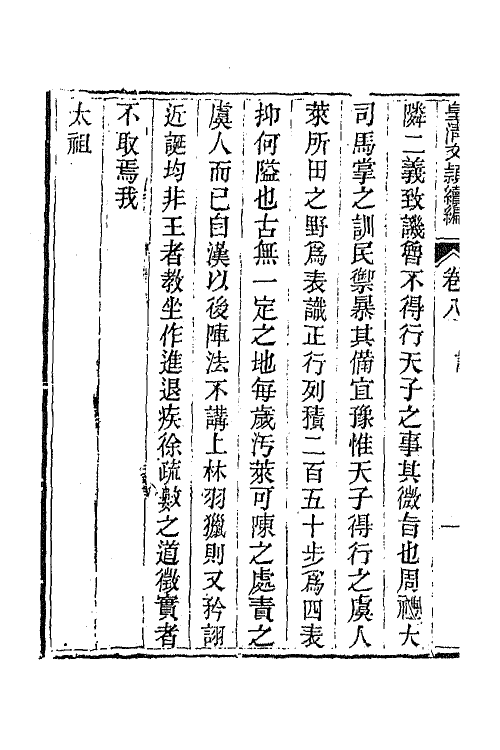 皇清文潁續編
卷八
隣二義致譏曾不得行天子之事其微旨也周禮大
司馬掌之訓民禦暴其備宜豫惟天子得行之虞人
萊所田之野爲表識正行列積二百五十步爲四表
抑何隘也古無一定之地每歲汚萊可陳之處責之
虞人而已自漢以後陣法不講上林羽獵則又矜詡
近誕均非王者教坐作進退疾徐疏數之道徵實者
不取焉我
太祖